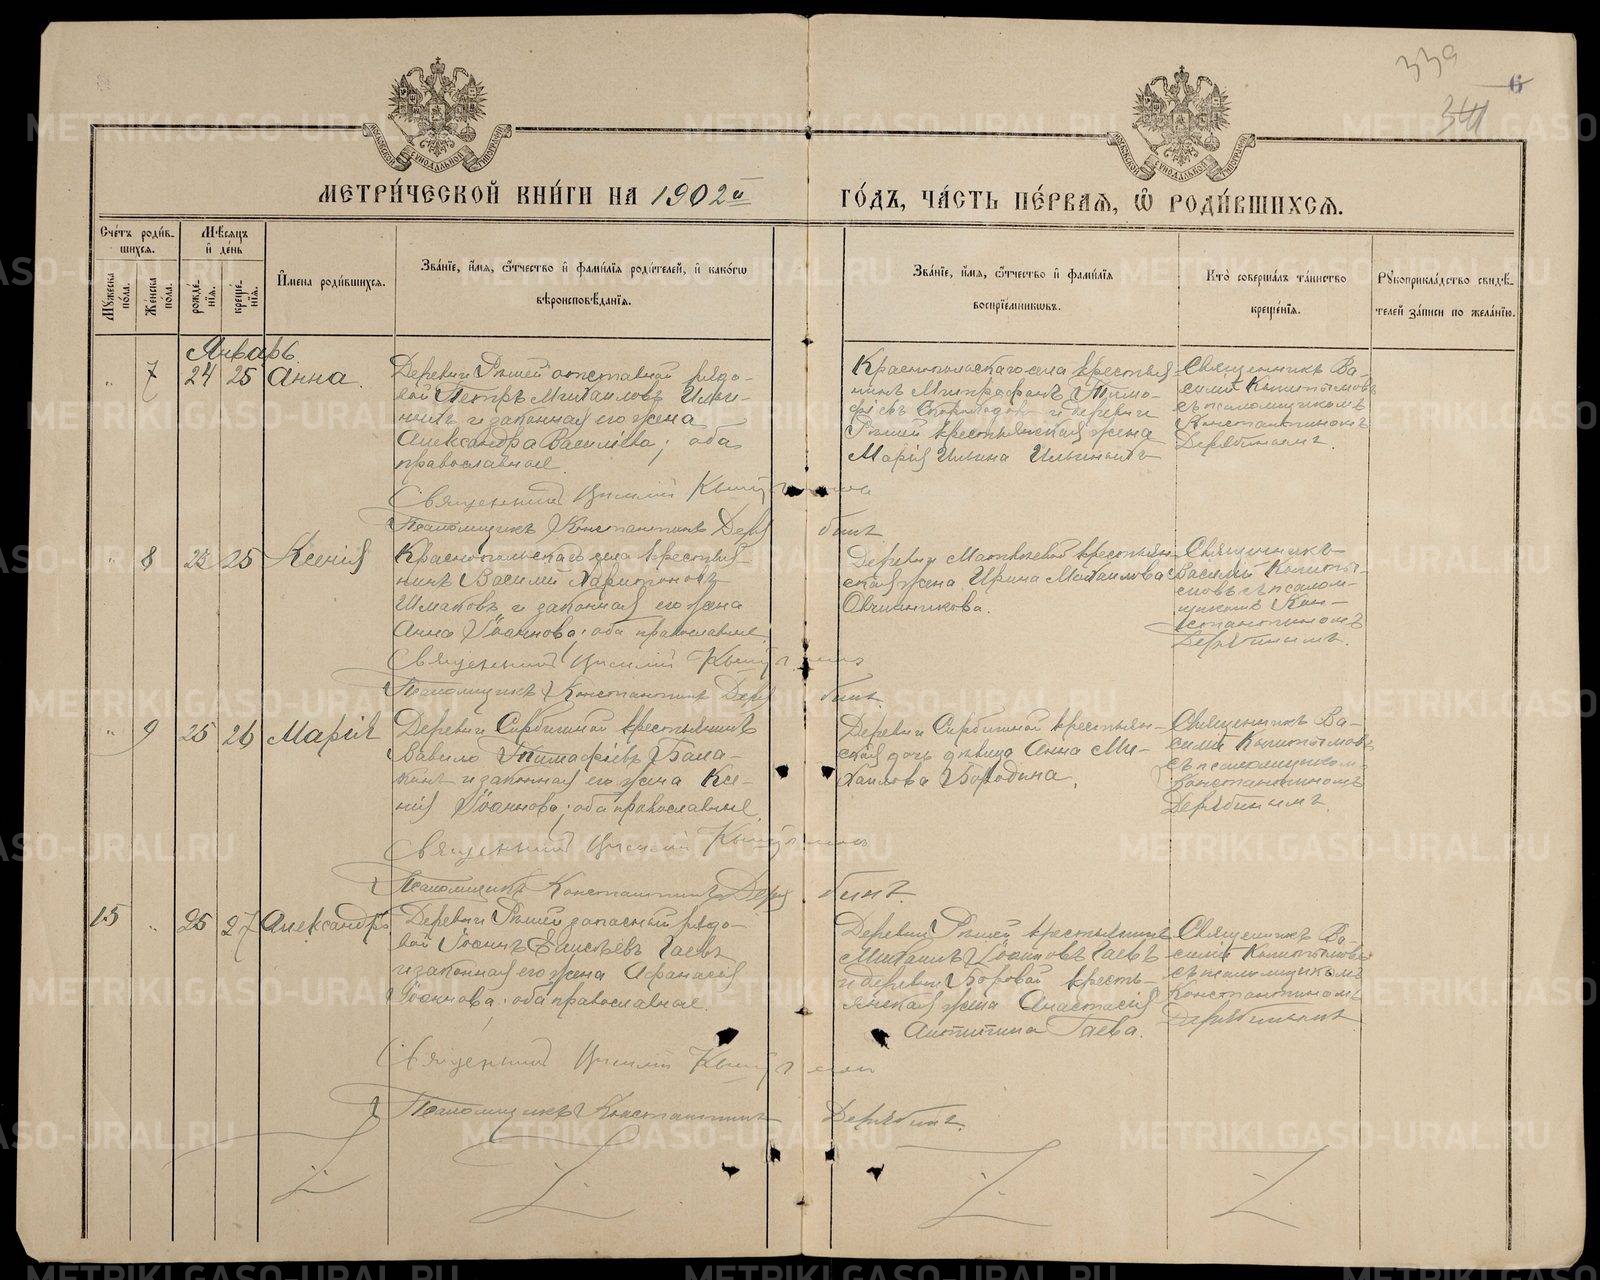 339
6
341
МОСКОВСКОЙ СѴНОДАЛЬНОЙ ТИПОГРАФІИ
МОСКОВСКОЙ СѴНОДАЛЬНОЙ ТИПОГРАФІИ
МЕТРИ́ЧЕСКОЙ КНИ́ГИ НА 1902й ГО́ДЪ, ЧА́СТЬ ПЕ́РВАЯ, Ѡ РОДИ́ВШИХСЯ.
Сче́тъ роди́в-
шихся.
Мꙋ́жеска по́ла.
Же́нска по́ла.
Мѣ́сяцъ
и де́нь
рожде́-
нїя.
креще́-
нїя.
И҆мена роди́вшихся.
Зва́нїе, и҆́мя, ѻ҆́тчество и҆ фами́лїя роди́телей, и҆ како́гѡ
вѣроисповѣ́данїя.
Зва́нїе, и҆́мя, ѻ҆́тчество и҆ фами́лїя
воспрїе́мникѡвъ.
Кто̀ соверша́лъ та́инство
креще́нїя.
Рꙋкоприкла́дство свидѣ́-
телей за́писи по жела́нїю.
Январь.
" 7 24 25 Анна.
Деревни Ряшей отставной рядо-
вой Петръ Михаиловъ Ильи-
ныхъ и законная его жена
Александра Василiева; оба
православные.
Краснопольскаго села крестья-
нинъ Митрофанъ Тимо-
феевъ и деревни
Ряшей крестьянская жена
Марiя Ильина Ильиныхъ
Священникъ Ва-
силiй Кыштымовъ
съ псаломщикомъ
Константиномъ
Дерябинымъ.
Священникъ Василiй Кыштымовъ
Псаломщикъ Константинъ Дерябинъ
" 8 23 25 Ксенiя
Краснопольскаго села крестья-
нинъ Василiй Харитоновъ
Шмаковъ и законная его жена
Анна Iоаннова; оба православные.
Деревни Матвѣевой крестьян-
ская жена Ирина Михаилова
Овчинникова.
Священникъ
Василiй Кышты-
мовъ съ псалом-
щикомъ Кон-
стантиномъ
Дерябинымъ.
Священникъ Василiй Кыштымовъ
Псаломщикъ Константинъ Дерябинъ.
" 9 25 26 Марiя
Деревни Сербишной крестьянинъ
Вавило Тимофѣевъ Бала-
кинъ и законная его жена Ксе-
нiя Iоаннова; оба православные.
Деревни Сербишной крестьян-
ская дочь дѣвица Анна Ми-
хаилова Бородина.
Священникъ Ва-
силiй Кыштымовъ
съ псаломщикомъ
Константиномъ
Дерябинымъ.
Священникъ Василiй Кыштымовъ
Псаломщикъ Константинъ Дерябинъ.
15 " 25 27 Александръ
Деревни Ряшей запасный рядо-
вой Iоаннъ Елисѣевъ Гаевъ
и законная его жена Афанасiя
Iоаннова; оба православные.
Деревни Ряшей крестьянинъ
Михаилъ Iоанновъ Гаевъ
и деревни Боровой кресть-
янская жена Анастасiя
Антипина Гаева.
Священникъ Ва-
силiй Кыштымовъ
съ псаломщикомъ
Константиномъ
Дерябинымъ.
Священникъ Василiй Кыштымовъ
Псаломщикъ Константинъ Дерябинъ.
METRIKI.GASO-URAL.RU